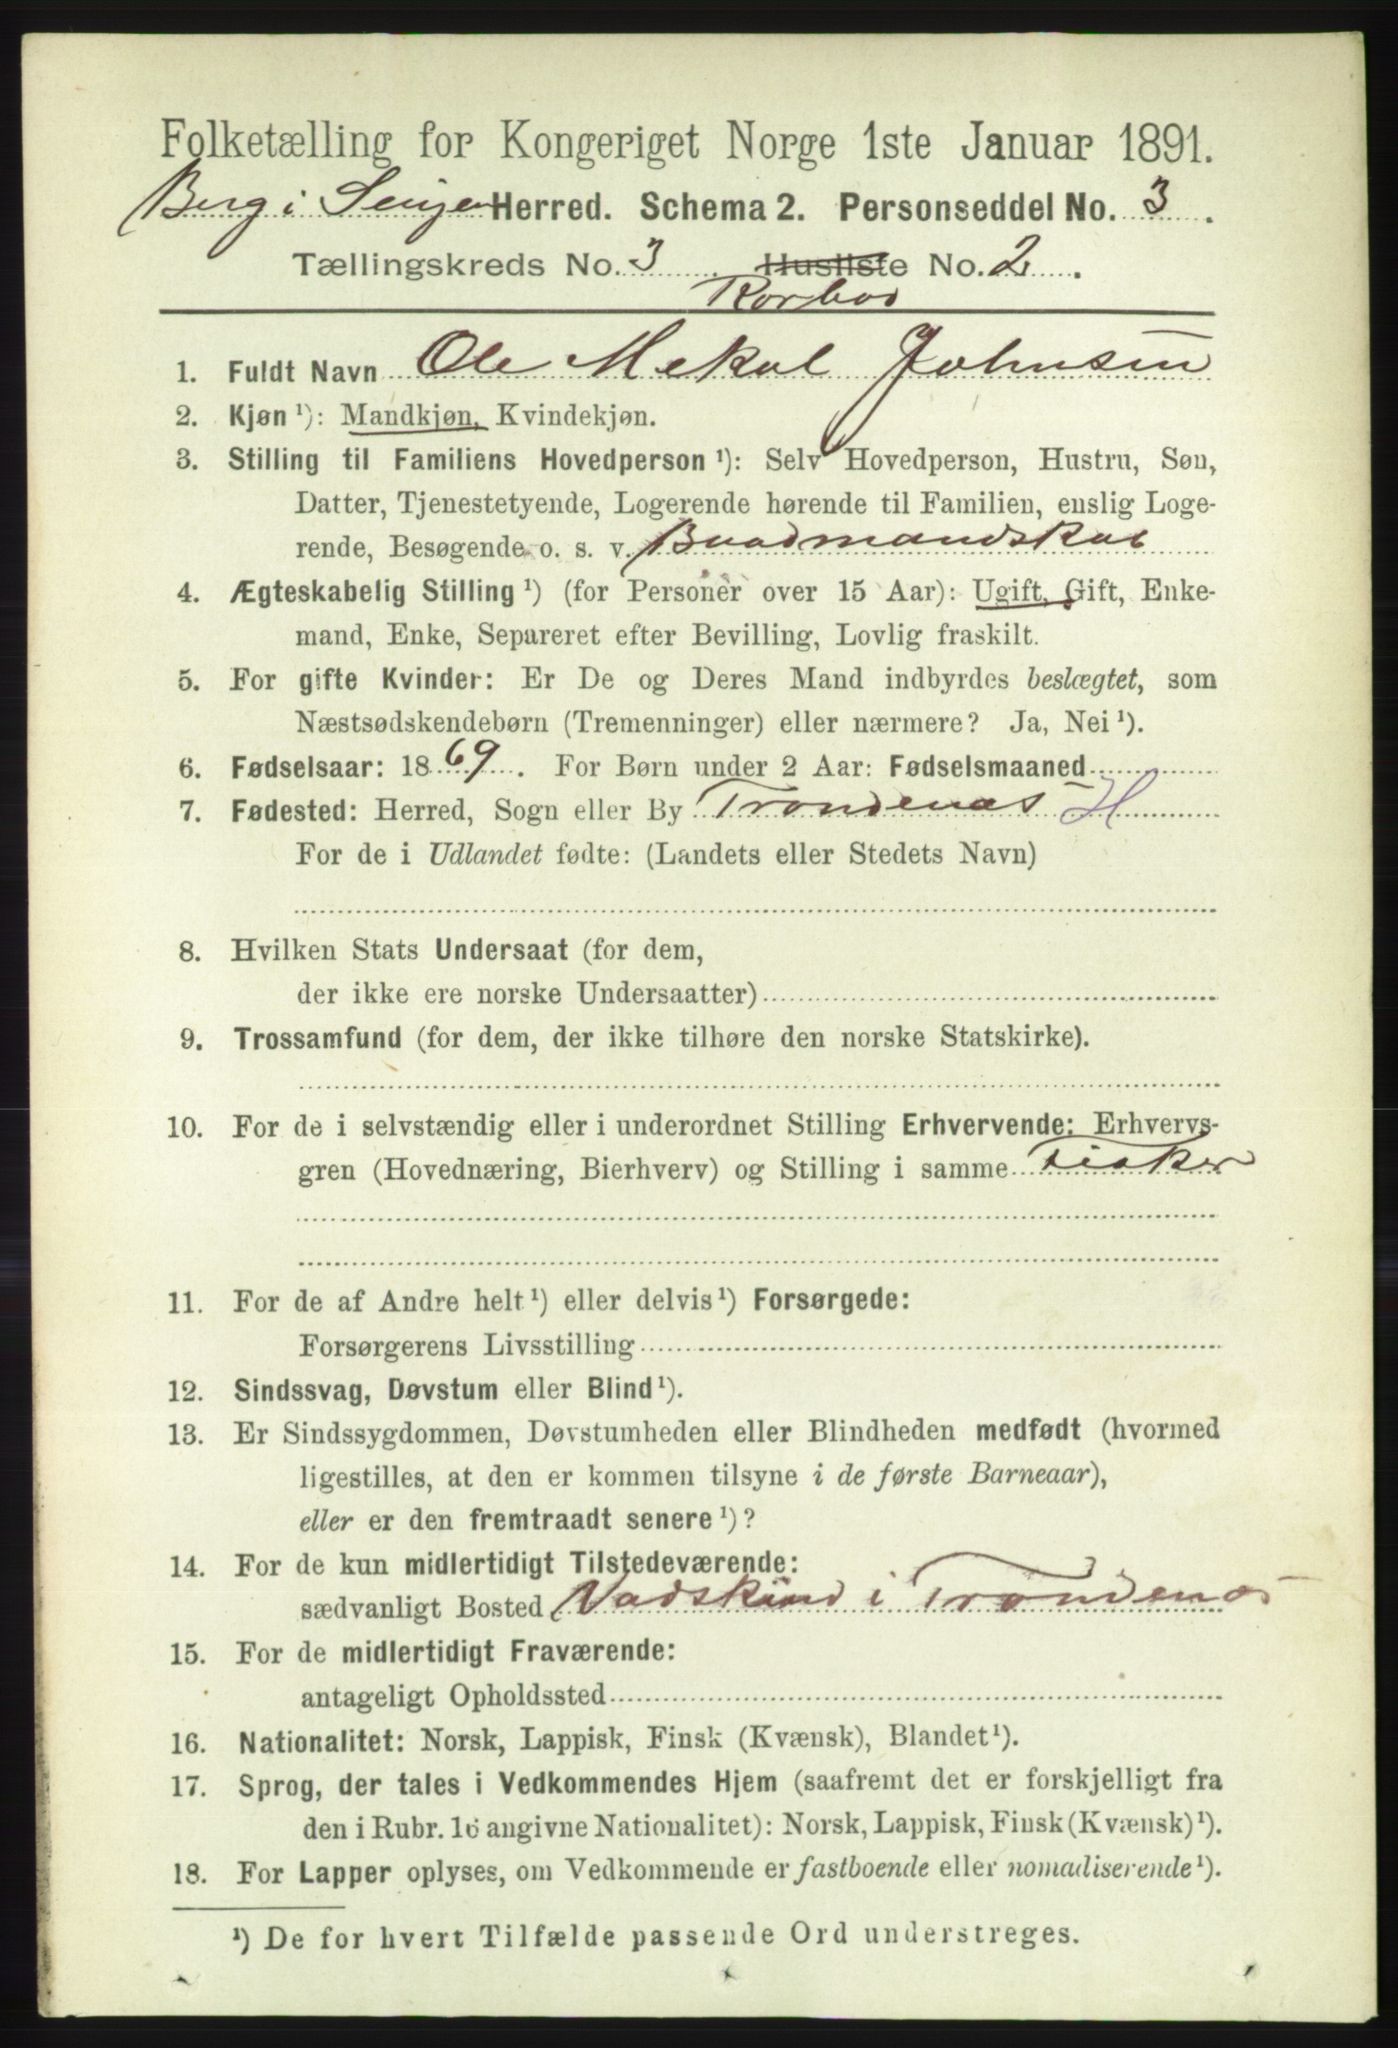 Folketælling for Kongeriget Norge 1ste Januar 1891.
Berg i Senjen Herred. Schema 2. Personseddel No. 3.
Tællingskreds No. 3. Husliste No. 2.
Rorbod
1. Fuldt Navn Ole Mekal Johnsen
2. Kjøn ¹): Mandkjøn, Kvindekjøn.
3. Stilling til Familiens Hovedperson ¹): Selv Hovedperson, Hustru, Søn,
Datter, Tjenestetyende, Logerende hørende til Familien, enslig Loge-
rende, Besøgende o. s. v. Baadmandskab
4. Ægteskabelig Stilling ¹) (for Personer over 15 Aar): Ugift, Gift, Enke-
mand, Enke, Separeret efter Bevilling, Lovlig fraskilt.
5. For gifte Kvinder: Er De og Deres Mand indbyrdes beslægtet, som
Næstsødskendebørn (Tremenninger) eller nærmere? Ja, Nei ¹).
6. Fødselsaar: 1869. For Børn under 2 Aar: Fødselsmaaned
7. Fødested: Herred, Sogn eller By Trondenæs H
For de i Udlandet fødte: (Landets eller Stedets Navn)
8. Hvilken Stats Undersaat (for dem,
der ikke ere norske Undersaatter)
9. Trossamfund (for dem, der ikke tilhøre den norske Statskirke).
10. For de i selvstændig eller i underordnet Stilling Erhvervende: Erhvervs-
gren (Hovednæring, Bierhverv) og Stilling i samme Fisker
11. For de af Andre helt ¹) eller delvis ¹) Forsørgede:
Forsørgerens Livsstilling
12. Sindssvag, Døvstum eller Blind ¹).
13. Er Sindssygdommen, Døvstumheden eller Blindheden medfødt (hvormed
ligestilles, at den er kommen tilsyne i de første Barneaar),
eller er den fremtraadt senere ¹)?
14. For de kun midlertidigt Tilstedeværende:
sædvanligt Bosted i Trondenæs
15. For de midlertidigt Fraværende:
antageligt Opholdssted
16. Nationalitet: Norsk, Lappisk, Finsk (Kvænsk), Blandet ¹).
17. Sprog, der tales i Vedkommendes Hjem (saafremt det er forskjelligt fra
den i Rubr. 16 angivne Nationalitet): Norsk, Lappisk, Finsk (Kvænsk) ¹).
18. For Lapper oplyses, om Vedkommende er fastboende eller nomadiserende ¹).
¹) De for hvert Tilfælde passende Ord understreges.